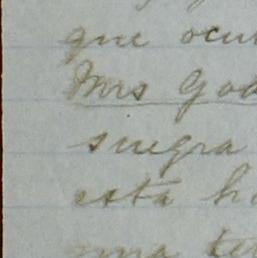 que ocur
Mrs God
suegra
esta h
una te